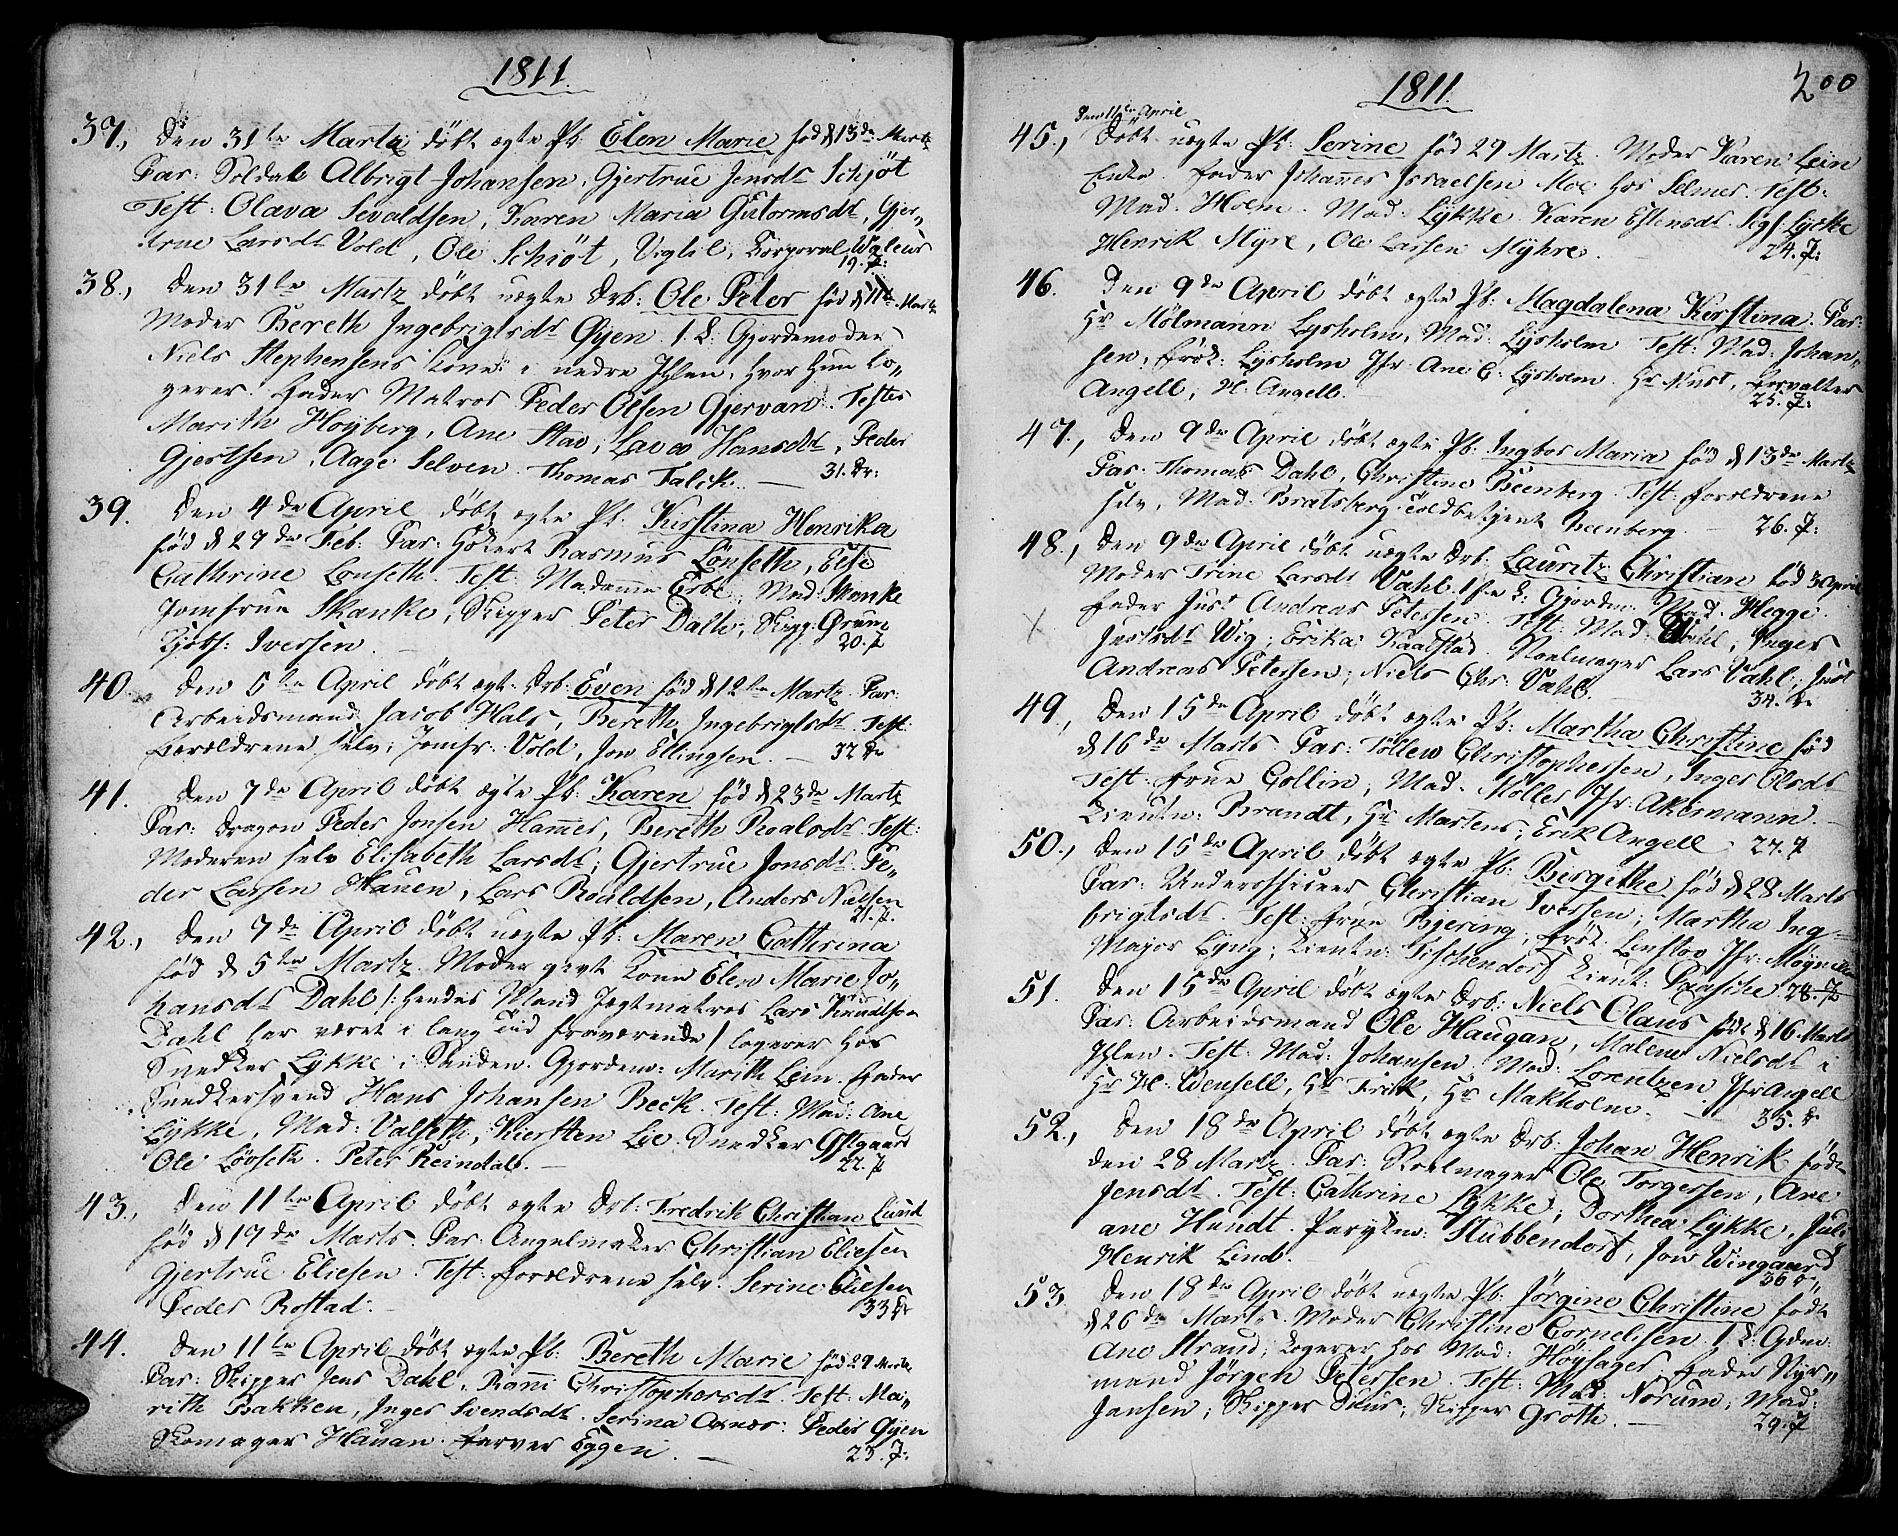 1811.
37., Den 31te Martz döbt ægte Pb: Elen Marie föd d 13de Martz
Par: Soldat Albrigt Johansen, Gjertrue Jensdr Schjöt
Test: Olava Sevaldsen, Karen Maria Gutormsdr, Gjer„
true Larsdr Vold, Ole Schiöt, Vigtil, Corporal Waleur
19. P:
38., Den 31te Martz döbt uægte Drb: Ole Peter föd d 11te Martz
Moder Bereth Ingebrigtsdr Øyen. 1. L: Gjordemoder
Niels Stephensens Kone i nedre Ihlen, hvor hun lo„
gerer. Fader Matros Peder Olsen Gjervan. Testes
Marith Höyberg, Ane Stav, Lava Hansdr, Peder
Gjertsen, Aage Selven. Thomas Falck. 31. Dr:
39. Den 4de April döbt ægte Pb: Kirstina Henrika
föd d 27de Feb: Par: Hökert Rasmus Lönseth, Else
Cathrine Lonseth. Test: Madame Erbe, Mad: Skanke
Jomfrue Skanke, Skipper Peter Dahl, Skipp: Grum
Kjöts: Iversen. 20. P
40. Den 5te April döbt ægt. Drb: Even föd d 12te Martz. Par:
Arbeidsmand Jacob Hals, Bereth Ingebrigtsdr. Test:
Foreldrene selv, Jomfr: Vold, Jon Ellingsen. 32 Dr
41. Den 7de April döbt ægte Pb: Karen föd d 23de Martz
Par: Dragon Peder Jonsen Hammer, Bereth Roalsdr. Test:
Moderen selv Elisabeth Larsdr, Gjertrue Jonsdr. Pe„
der Larsen Hauen, Lars Roaldsen, Anders Nielsen
21. P.
42., Den 7de April döbt uægte Pb: Maren Cathrina
föd d 5te Martz. Moder givt Kone Elen Marie Jo„
hansdr Dahl /: hendes Mand Jegtmatros Lars Knudsen
Dahl har været i lang Tiid fraværende / logerer hos
Snedker Lykke i Sanden. Gjordem: Marith Lein. Fader
Snedkersvend Hans Johansen Beck. Test: Mad: Ane
Lykke, Mad: Valseth, Kiersten Lie. Snedker Opstgaard
Ole Lövseth. Peter Reindal. 22. P
43., Den 11te April döbt ægte Drb: Fredrik Christian Lund
föd d 19de Marts. Par: Angelmaker Christian Eliesen
Gjertrue Eliesen. Test: Foreldrene selv. Serine Eliesen
Peder Rostad. 33 Dr
44. Den 11te April döbt ægte Pb: Bereth Marie föd 29 Martz
Par: Skipper Jens Dahl, Ranni Christophersdr. Test: Ma„
rith Bakken, Inger Svendsdr. Serina Aarnes: Peder Øyen
Skomager Hauan. Farver Eggen. 23. P:
1811. 200
Den 11te April
45., döbt uægte Pb: Serine föd 29 Martz. Moder Karen Lein
Enke. Fader Johannes Israelsen Moe hos Selmer. Test:
Mad: Holm. Mad: Lykke. Karen Estensdr. Sigf Lykke
Henrik Myre, Ole Larsen Myhre. 24. P:
46. Den 9de April döbt ægte Pb: Magdalena Kirstina. Par:
Hr Mölmann Lysholm, Mad: Lysholm. Test: Mad: Johan„
sen, Frök: Lysholm Jfr: Ane C. Lysholm. Hr Must, Forvalter
Angell, H. Angell. 25. P:
47., Den 9de April döbt ægte Pb: Ingbor Maria föd d 13de Martz
Par: Thomas Dahl, Christine Beenberg. Test: Foreldrene
selv, Mad: Bratsberg. Toldbetjent Beenberg. 26. P:
48., Den 9de April döbt uægte Drb: Lauritz Christian föd 3 April
Moder Trine Larsdr Vahl. 1te L: Gjordem: Mad: Hegge.
Fader Just Andreas Petersen. Test: Mad: Wahl, Inger
Justsdr Wig, Erika Kaalstad. Roelmager Lars Vahl, Just
Andreas Petersen, Niels Chr: Vahl. 34. Dr
49., Den 15de April döbt ægte Pb: Martha Christine föd
d 16de Marts. Par: Töllew Christophersen, Inger Olsdr
Test: Frue Collin, Mad: Möller, Jfr: Akermann
Lieutn: Brandt, Hr Martens, Erik Angell. 27. P
50., Den 15de April döbt ægte Pb: Birgithe föd d 28 Marts
Par: Underofficeer Christian Iversen, Martha Ing„
brigtsdr. Test: Frue Bjering, Frök: Linstow Jfr: Möynichen
Major Lyng, Lieutn: Tischendorf Lieut: Paasche. 28. P
51. Den 15de April döbt ægte Drb: Niels Claus föd d 16 Marts
Par: Arbeidsmand Ole Haugan, Malene Nielsdr i
Ihlen. Test: Mad: Johansen, Mad: Lorentzen, Jfr Angell
Hr H: Wensell, Hr Frik, Hr Makholm. 35. Dr
52., Den 18de April döbt ægte Drb. Johan Henrik föd
den 28 Martz. Par: Roelmager Ole Torgersen, Ane
Jensdr. Test: Cathrine Lykke, Dorthea Lykke. Juli
ane Hundt. Parykm: Stubbendorf, Jon Wingaard
Henrik Lind. 36 Dr
53 Den 18de April döbt uægte Pb: Jörgine Christine föd
d 26de Marts. Moder Christine Cornelisen 1. L. Gdem:
Ane Strand, logerer hos Mad: Höysager. Fader Styr„
mand Jörgen Petersen. Test: Mad: Norum, Mad:
Jansen, Skipper Duus, Skipper Groth. 29. P